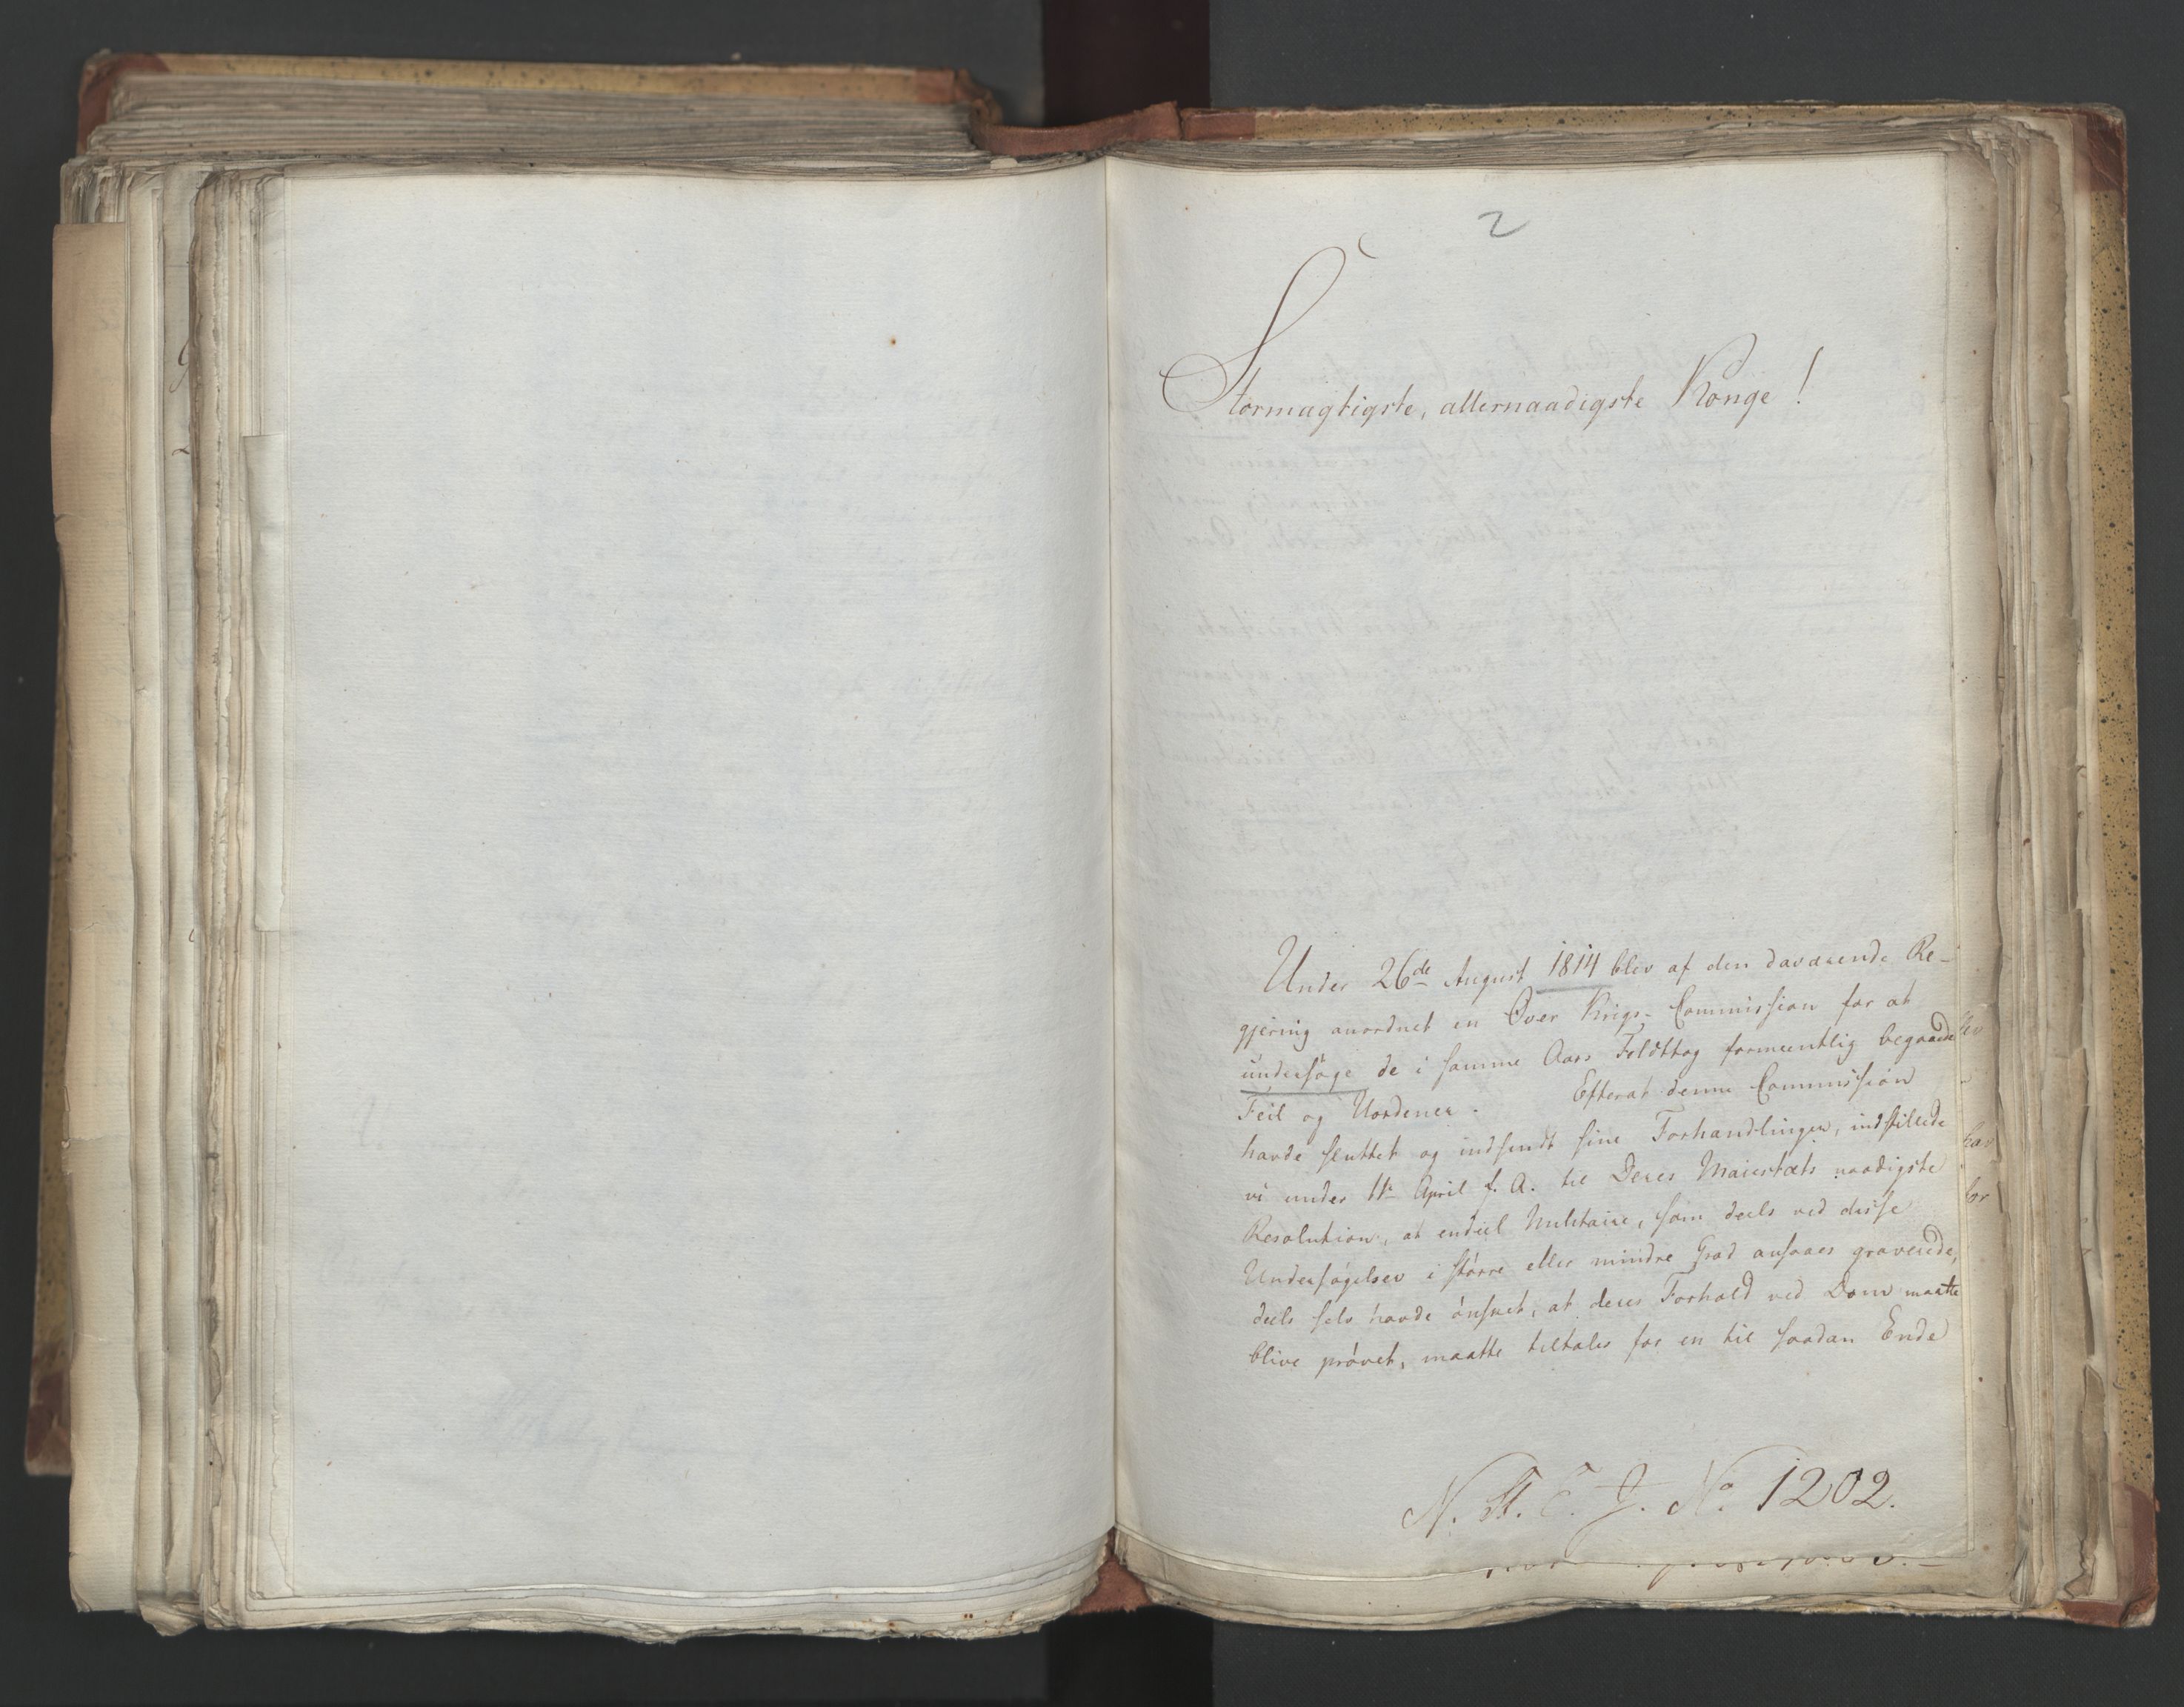 2
Stormagtigste, allernaadigste Konge!
Under 26de August 1814 blev af den daværende Re-
gjering anordnet en Over Krigs-Commission for at
undersøge de i samme Aars Feldttog formeentlig begaaede
Feil og Uordener. Efterat denne Commission
havde sluttet og indsendt sine Forhandlinger, indstillede
vi under 11te April f. A. til Deres Maiestæts naadigste
Resolution, at endeel Militaire, som deels ved disse
Undersøgelser i større eller mindre Grad ansaaes graverede,
deels selv havde ønsket, at deres Forhold ved Dom maatte
blive prøvet, maatte tiltales for en til saadan Ende
N. St. E. J. No 1202.